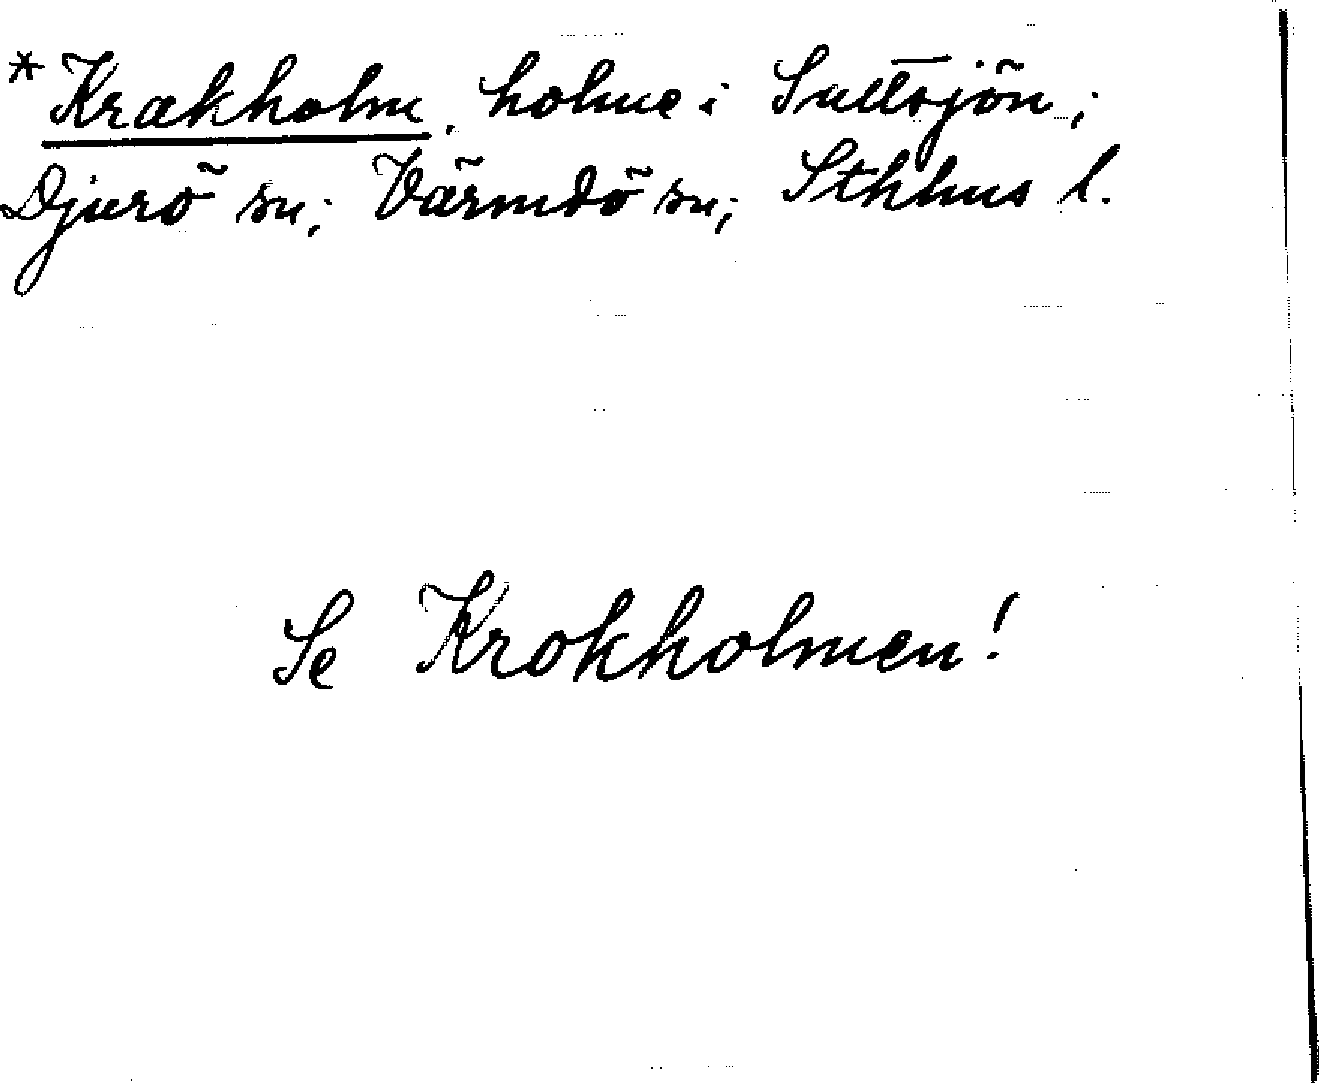 *Krakholm, holme i
Djurö sn; Värmdö sn; Sthlms l.
Se Krokholmen!